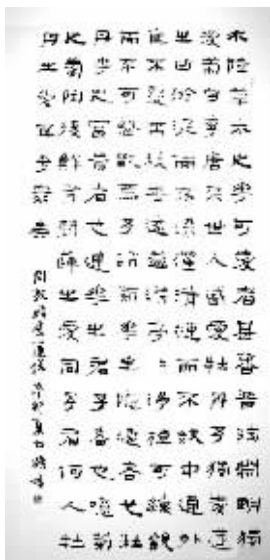 水陸草木之華可愛者甚蕃晉陶淵明獨
愛菊自李唐來世人盛愛牡丹予獨愛蓮
之出淤泥而不染濯清漣而不妖中通外
直不蔓不枝香遠益清亭亭淨植可遠觀
而不可褻翫焉予謂菊華之隱逸者也牡
丹華之富貴者也蓮華之君子者也噫菊
之愛陶後鮮有聞蓮之愛同予者何人牡
丹之愛宜乎眾矣
周敦頤愛蓮說